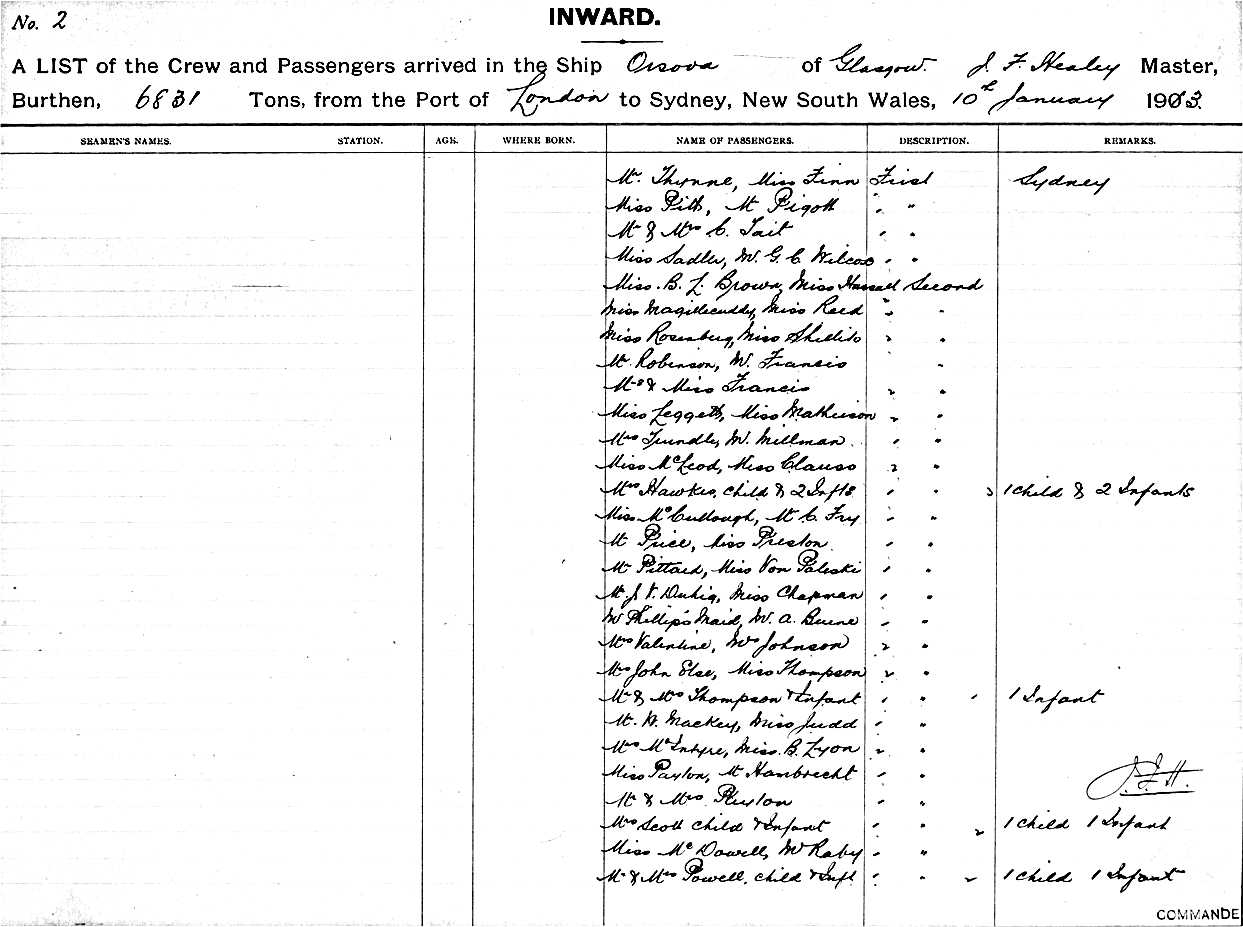 No. 2
INWARD.
A LIST of the Crew and Passengers arrived in the Ship Orsova of Glasgow. J. F. Healey Master,
Burthen, 6831 Tons, from the Port of London to Sydney, New South Wales, 10th January 1903.
SEAMEN'S NAMES. STATION. AGE. WHERE BORN. NAME OF PASSENGERS. DESCRIPTION. REMARKS.
Mr. Thynne, Miss Finn First Sydney
Miss Pitt, Mr Pigott " "
Mr & Mrs C. Tait " "
Miss Sadler, Mr. G. C. Wilcox " "
Miss. B. L. Brown, Miss Hassall Second
Miss Magillicuddy, Miss Reed " "
Miss Rosenberg, Miss Shillito " "
Mr. Robinson, Mr. Francis "
Mrs & Miss Francis " "
Miss Leggett, Miss Mathieson " "
Mrs Trundle, Mr. Millman. " "
Miss McLeod, Miss Clauss " "
Mrs Hawkes, child & 2 Infts " " " 1 child & 2 Infants
Miss McCullough, Mr C. Fry " "
Mr Price, Miss Preston. " "
Mr Pittard, Miss Von " "
Mr. J. V. Duhig, Miss Chapman " "
Mr Phillips Maid, Mr. A. " "
Mrs Valentine, Mrs Johnson " "
Mrs John Else, Miss Thompson " "
Mr & Mrs Thompson & Infant " " " 1 Infant
Mr. W. Mackey, Miss Judd " "
Mrs McIntyre, Miss. B. Lyon " "
Miss Paxton, Mr Hanbrecht " "
J.F.H.
Mr & Mrs " "
Mrs Scott child & Infant " " " 1 child 1 Infant
Miss McDowell, Mr Raby " "
Mr & Mrs Powell, child & Inft " " " 1 child 1 Infant
COMMANDE